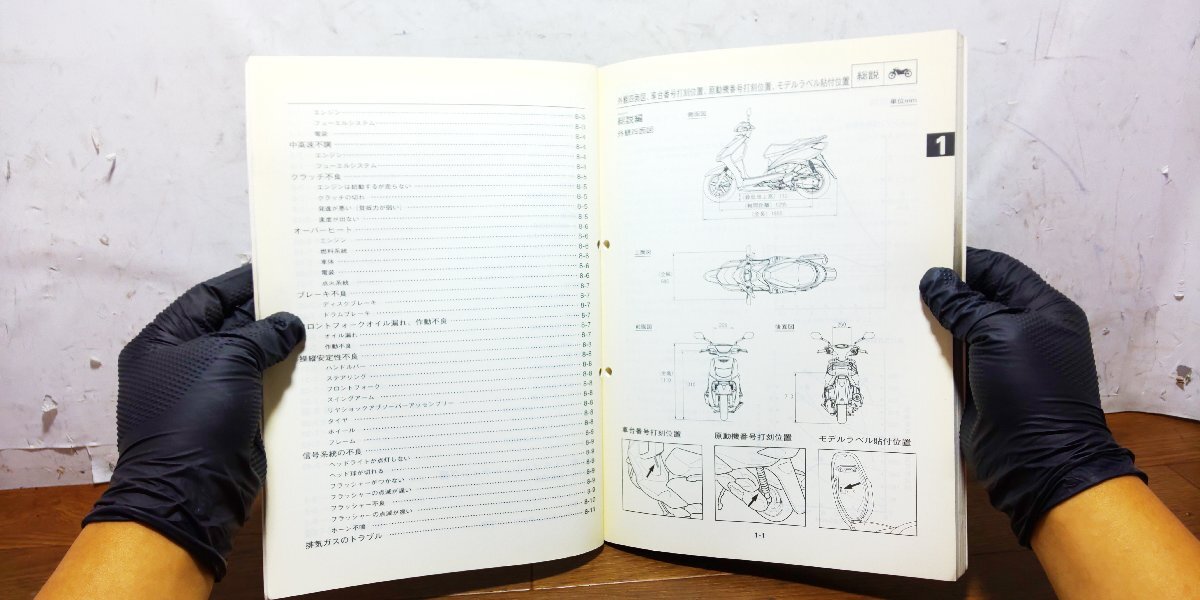 エンジン 8-3
フューエルシステム 8-3
電装 8-4
中高速不調 8-4
エンジン 8-4
フューエルシステム 8-4
クラッチ不良 8-5
エンジンは始動するが走らない 8-5
クラッチの切れ 8-5
発進が悪い(登坂力が弱い) 8-5
速度が出ない 8-5
オーバーヒート 8-6
エンジン 8-6
燃料系統 8-6
車体 8-6
電装 8-6
点火系統 8-6
ブレーキ不良 8-7
ディスクブレーキ 8-7
ドラムブレーキ 8-7
ロントフォークオイル漏れ、作動不良 8-7
オイル漏れ 8-7
作動不良 8-7
操縦安定性不良 8-8
ハンドルバー 8-8
ステアリング 8-8
フロントフォーク 8-8
スイングアーム 8-8
リヤショックアブソーバーアッセンブリー 8-8
タイヤ 8-8
ホイール 8-8
フレーム 8-8
信号系統の不良 8-9
ヘッドライトが点灯しない 8-9
ヘッド球が切れる 8-9
フラッシャーがつかない 8-9
フラッシャーの点滅が速い 8-9
フラッシャー不良 8-9
フラッシャーの点滅が遅い 8-9
ホーン不鳴 8-10
排気ガスのトラブル 8-11
外観四面図、車台番号打刻位置、原動機番号打刻位置、モデルラベル貼付位置
総説
単位mm
1
総説編
外観四面図
側面図
上面図
前面図
後面図
車台番号打刻位置
原動機番号打刻位置
モデルラベル貼付位置
1-1